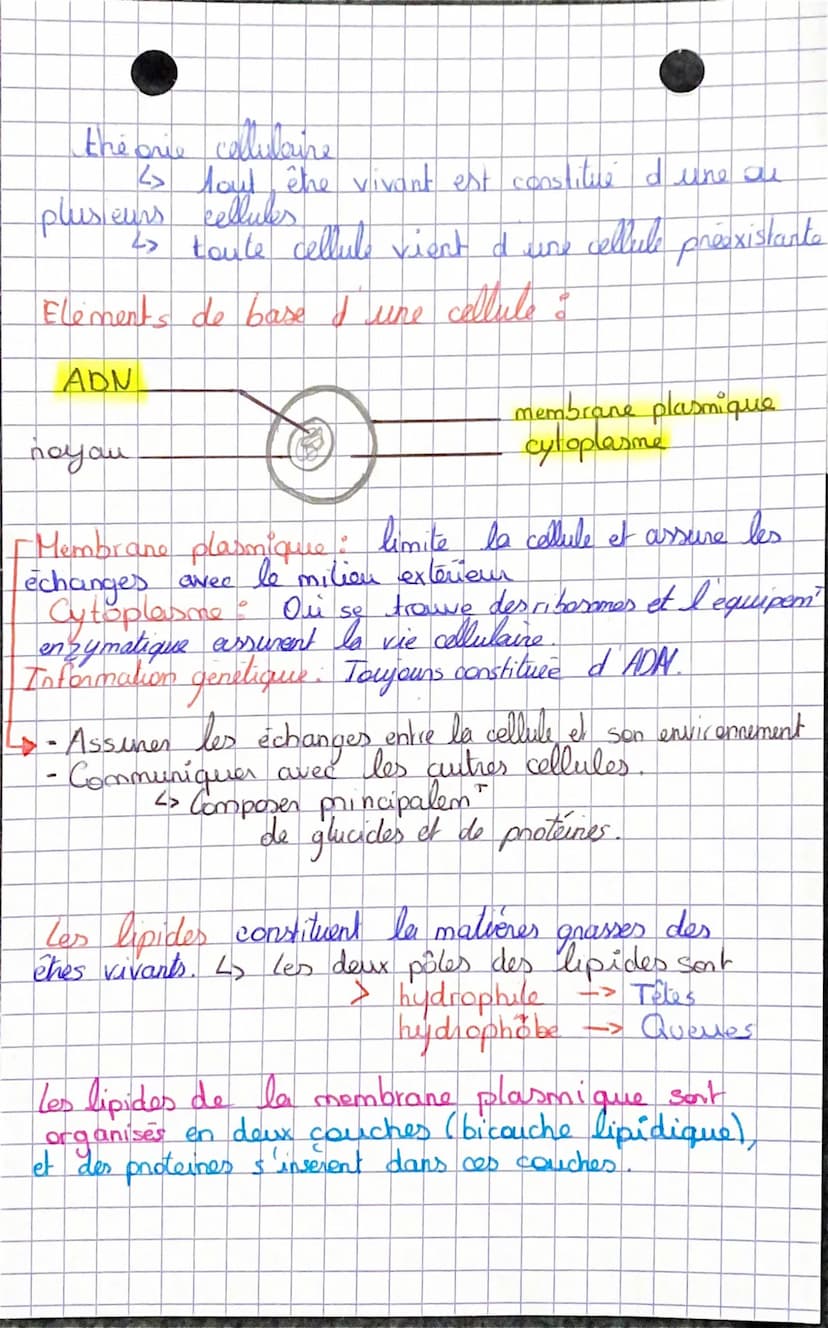 théorie cellulaire
↳ Tout être vivant est constitué d'une ou
plusieurs cellules
↳ toute cellule vient d'une cellule préexistante
Eléments de base d'une cellule :
ADN
membrane plasmique
noyau
cytoplasme
Membrane plasmique : limite la cellule et assure les
échanges avec le milieu extérieur
Cytoplasme : Où se trouve des ribosomes et l'équipemT
enzymatique assurent la vie cellulaire.
Information génétique : Toujours constituée d'ADN.
- Assurer les échanges entre la cellule et son environnement
- Communiquer avec les autres cellules.
↳ Composer principalemT
de glucides et de protéines.
Les lipides constituent la matières grasses des
êtres vivants. ↳ Les deux pôles des lipides sont
> hydrophile --> Têtes
hydrophobe --> Queues
Les lipides de la membrane plasmique sont
organisés en deux couches (bicouche lipidique),
et des proteines s'insèrent dans ces couches.